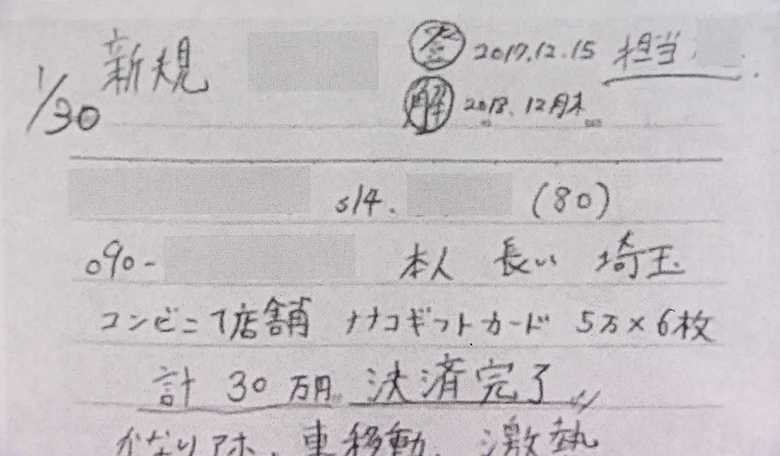 新規 登 2017.12.15 担当
1/30 解 2018.12月末
S14. (80)
090- 本人 長い 埼玉
コンビニ1店舗 ナナコギフトカード 5万×6枚
計 30万円 決済完了
かなりアホ、車移動、激熱